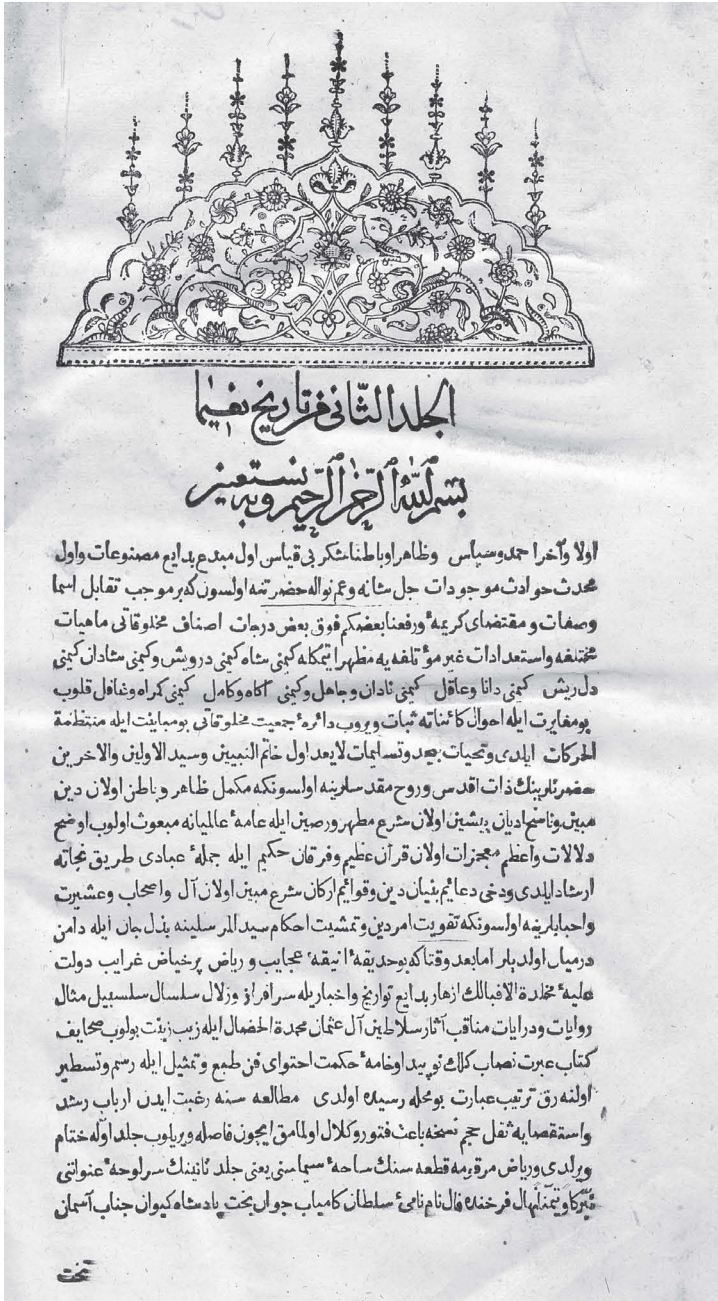 الجلد الثانی من تاریخ نعیما
بسم الله الرحمن الرحيم وبه نستعين
اولا وآخرا حمد وسپاس وظاهرا وباطنا شکر بی قیاس اول مبدع بدایع مصنوعات واول
محدث حوادث موجودات جل شانه وعم نواله حضرتنه اولسون که بر موجب تقابل اسما
وصفات ومقتضای کریمهٔ ورفعنا بعضکم فوق بعض درجات اصناف مخلوقاتی ماهیات
مختلفه واستعدادات غیر مؤتلفه یه مظهر ایتمکله کیمنی شاه کیمنی درویش وکیمنی شادان کیمنی
دل ریش کیمنی دانا وعاقل کیمنی نادان وجاهل وکیمنی آکاه وکامل کیمنی کمراه وغافل قلوب
بو مغایرت ایله احوال کائناته ثبات ویروب دائرهٔ جمعیت مخلوقاتی بو مباینت ایله منتظمة
الحرکات ایلدی وتحیات بیعد وتسلیمات لایعد اول خاتم النبیین وسید الاولین والاخرین
حضرتلرینك ذات اقدس وروح مقدسلرینه اولسونکه مکمل ظاهر وباطن اولان دین
مبین وناسخ ادیان پیشین اولان شرع مطهر ورصین ایله عامهٔ عالمیانه مبعوث اولوب اوضح
دلالات واعظم معجزات اولان قرآن عظیم وفرقان حکیم ایله جملهٔ عبادی طریق نجاته
ارشاد ایلدی ودخی دعایم بنیان دین وقوایم ارکان شرع مبین اولان آل واصحاب وعشیرت
واحبابلرینه اولسونکه تقویت امر دین وتمشیت احکام سید المرسلینه بذل جان ایله دامن
درمیان اولدیلر اما بعد وقتاکه بو حدیقهٔ انیقهٔ عجایب وریاض پرحیاض غرایب دولت
علیهٔ مخلدة الاقبالك ازهار بدایع تواریخ واخباریله سرافراز وزلال سلسال سلسبیل مثال
روایات ودرایات مناقب آثار سلاطین آل عثمان محمدة الخصال ایله زیب زینت بولوب صحایف
کتاب عبرت نصاب کلك نوپید اوخامهٔ حکمت احتوای فن طبع وتمثیل ایله رسم وتسطیر
اولنه رق ترتیب عبارت بو محله رسیده اولدی مطالعه سنه رغبت ایدن ارباب رشد
واستقصایه ثقل حجم نسخه باعث فتور وکلال اولمامق ایچون فاصله ویریلوب جلد اوله ختام
ویرلدی وریاض مرقومه قطعه سنك ساحهٔ سیماسنی یعنی جلد ثانینك سرلوحهٔ عنواننی
تبرکا وتیمنا بهال فرخنده فال نام نامیٔ سلطان کامیاب جوان بخت پادشاه کیوان جناب آسمان
تخت